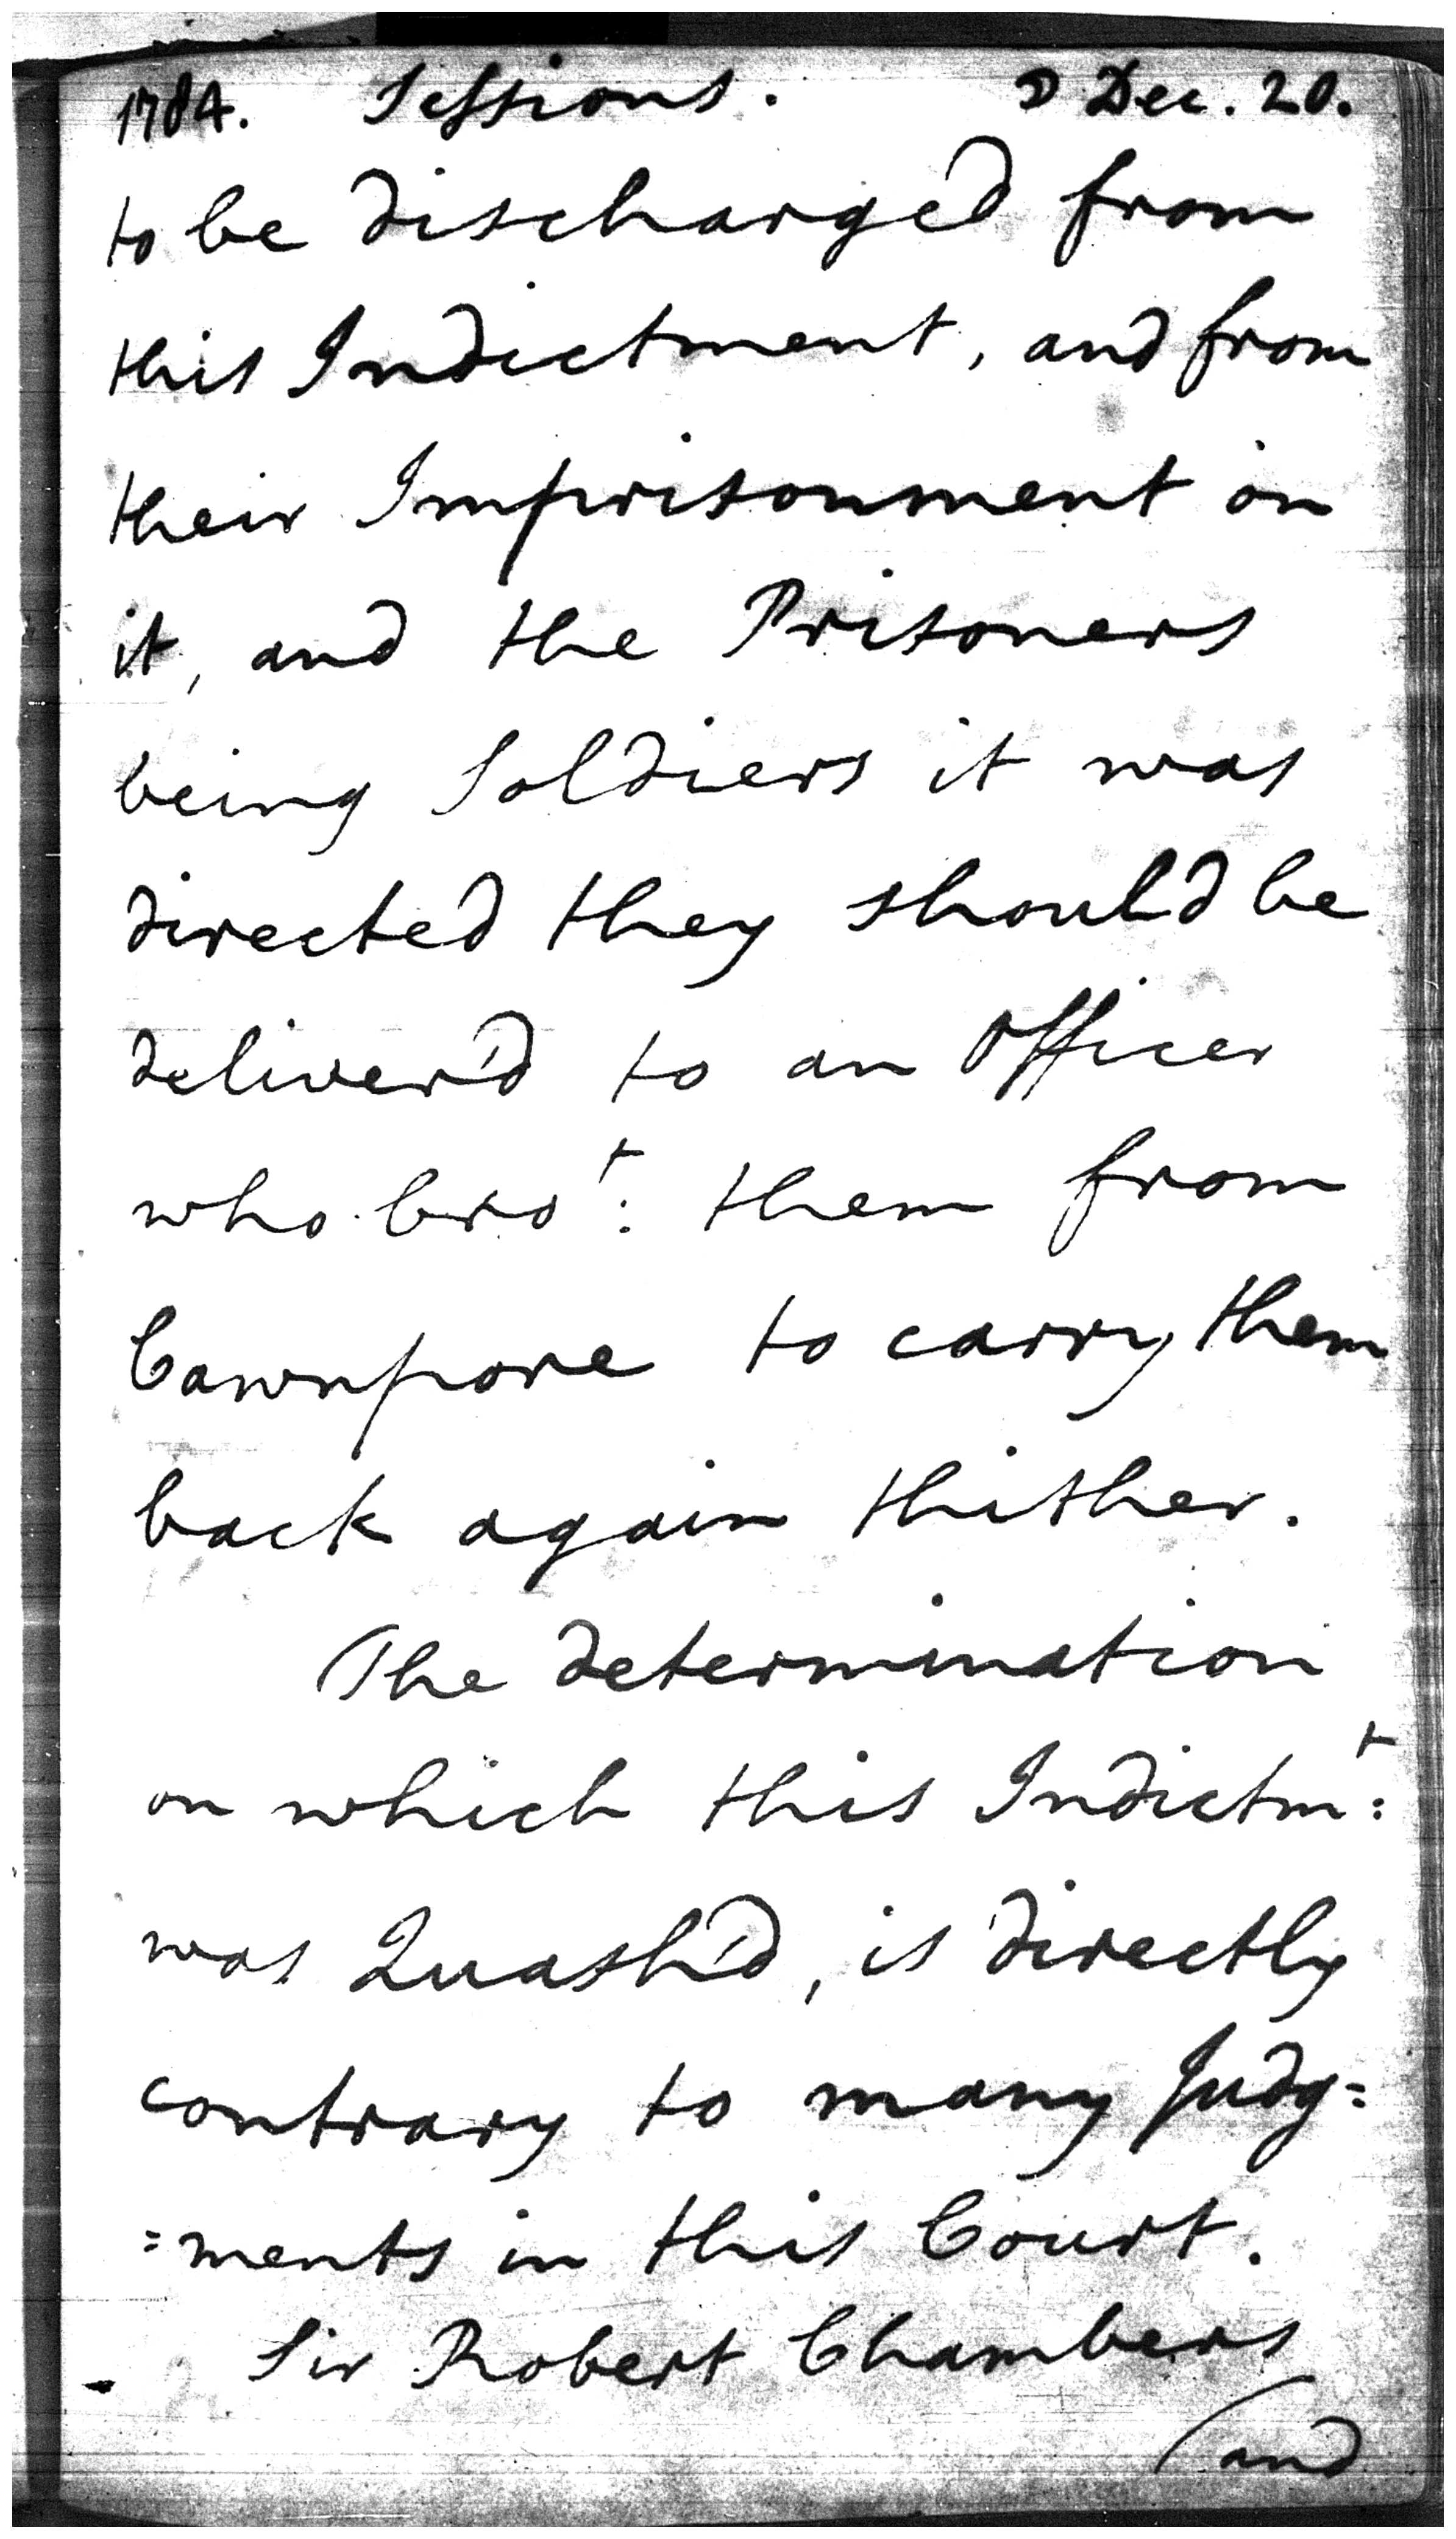 1784. Sessions. ☽ Dec. 20.
to be discharged from
this Indictment, and from
their Imprisonment on
it, and the Prisoners
being Soldiers it was
directed they should be
deliver'd to an Officer
who bro^t: them from
Cawnpore to carry them
back again thither.
The determination
on which this Indictm^t:
was Quash'd, is directly
contrary to many Judg=
=ments in this Court.
Sir Robert Chambers
(and